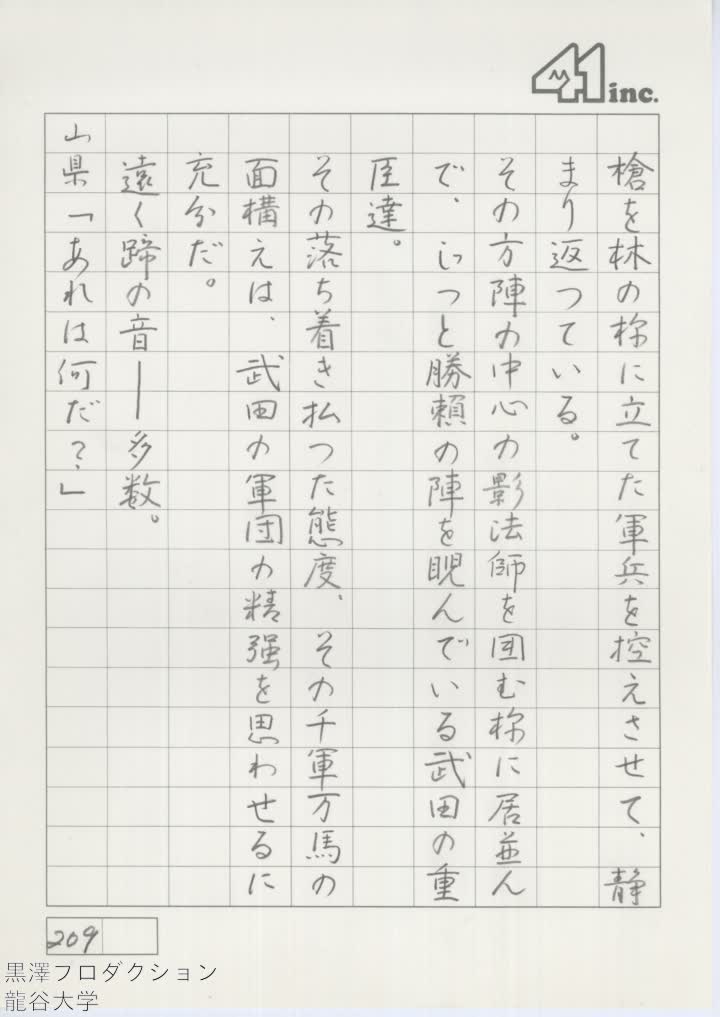 M
41 inc.
槍を林の様に立てた軍兵を控えさせて、静
まり返つている。
その方陣の中心の影法師を囲む様に居並ん
で、じつと勝頼の陣を睨んでいる武田の重
臣達。
その落ち着き払つた態度、その千軍万馬の
面構えは、武田の軍団の精强を思わせるに
充分だ。
遠く蹄の音——多数。
山県「あれは何だ?」
209
黒澤プロダクション
龍谷大学